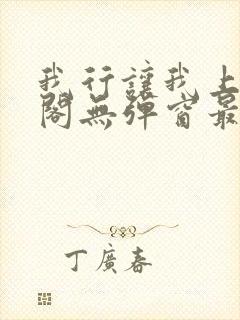 我行讓我上
閣無彈窗最
丁廣春